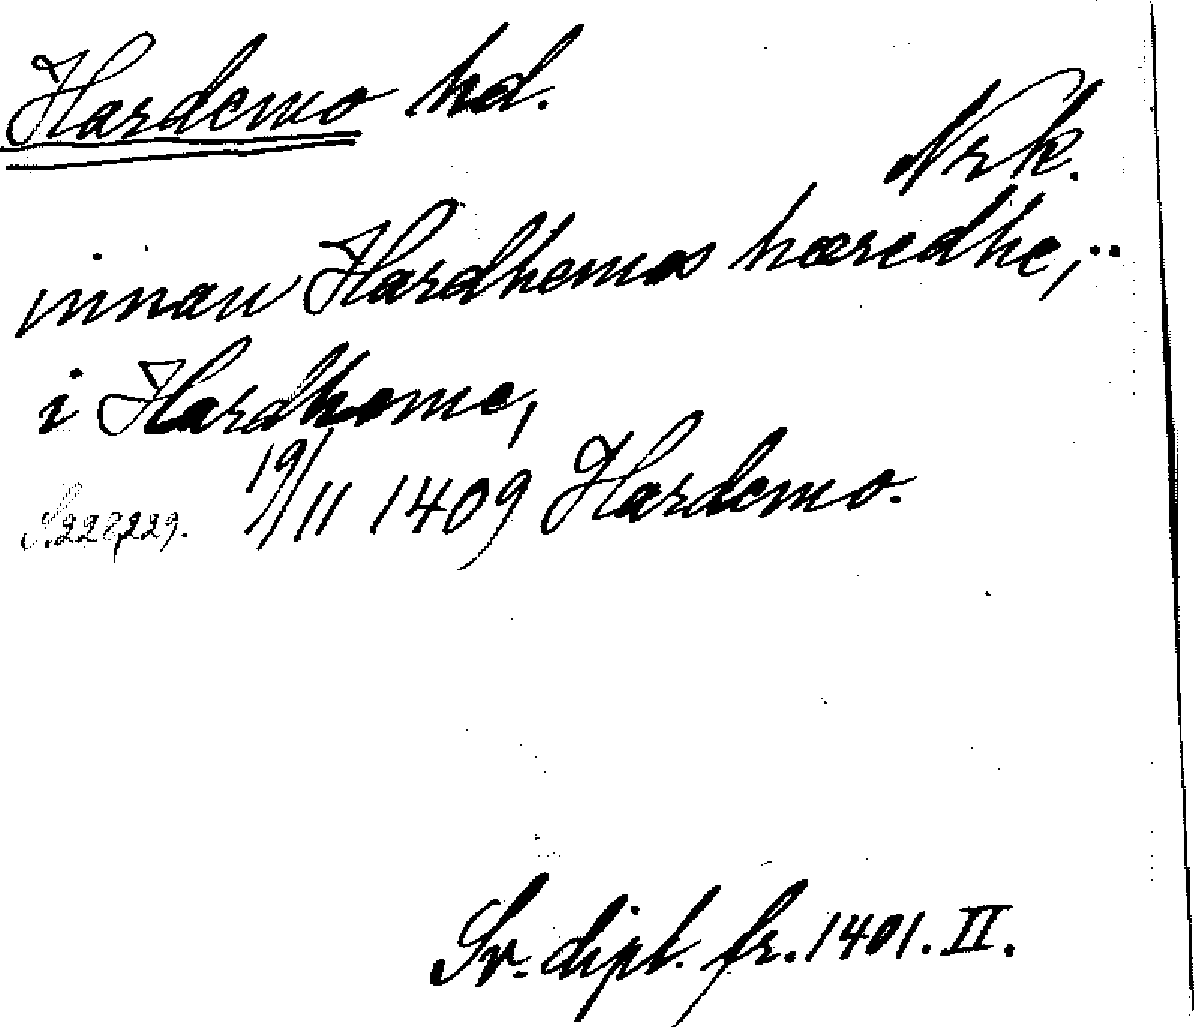 Hardemo hd.
Nrk.
innan Hardhemos hæredhe,..
i Hardheme,
19/11 1409 Hardemo.
S. 228, 229.
Sv. dipl. fr. 1401. II.